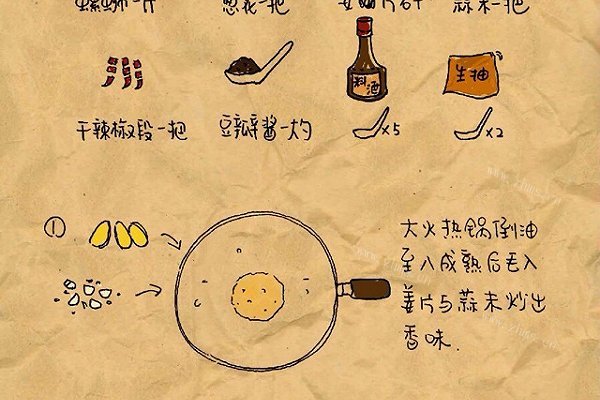 螺蛳一斤 葱花一把 姜片若干 蒜末一把
料酒 生抽
干辣椒段一把 豆瓣酱一灼 x5 x2
① 大火热锅倒油
至八成熟后毛入
姜片与蒜末炒出
香味.